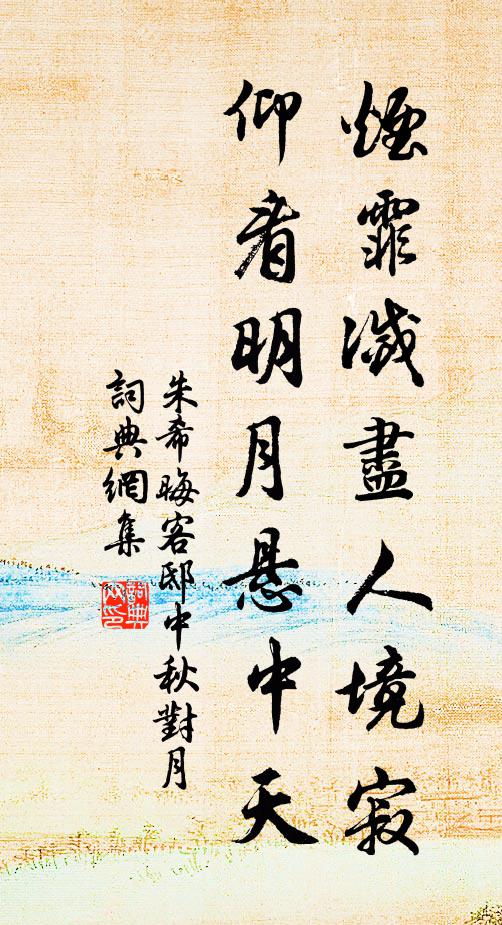 煙霏滅盡人境寂
仰看明月懸中天
朱希晦客邸中秋對月
詞典網集